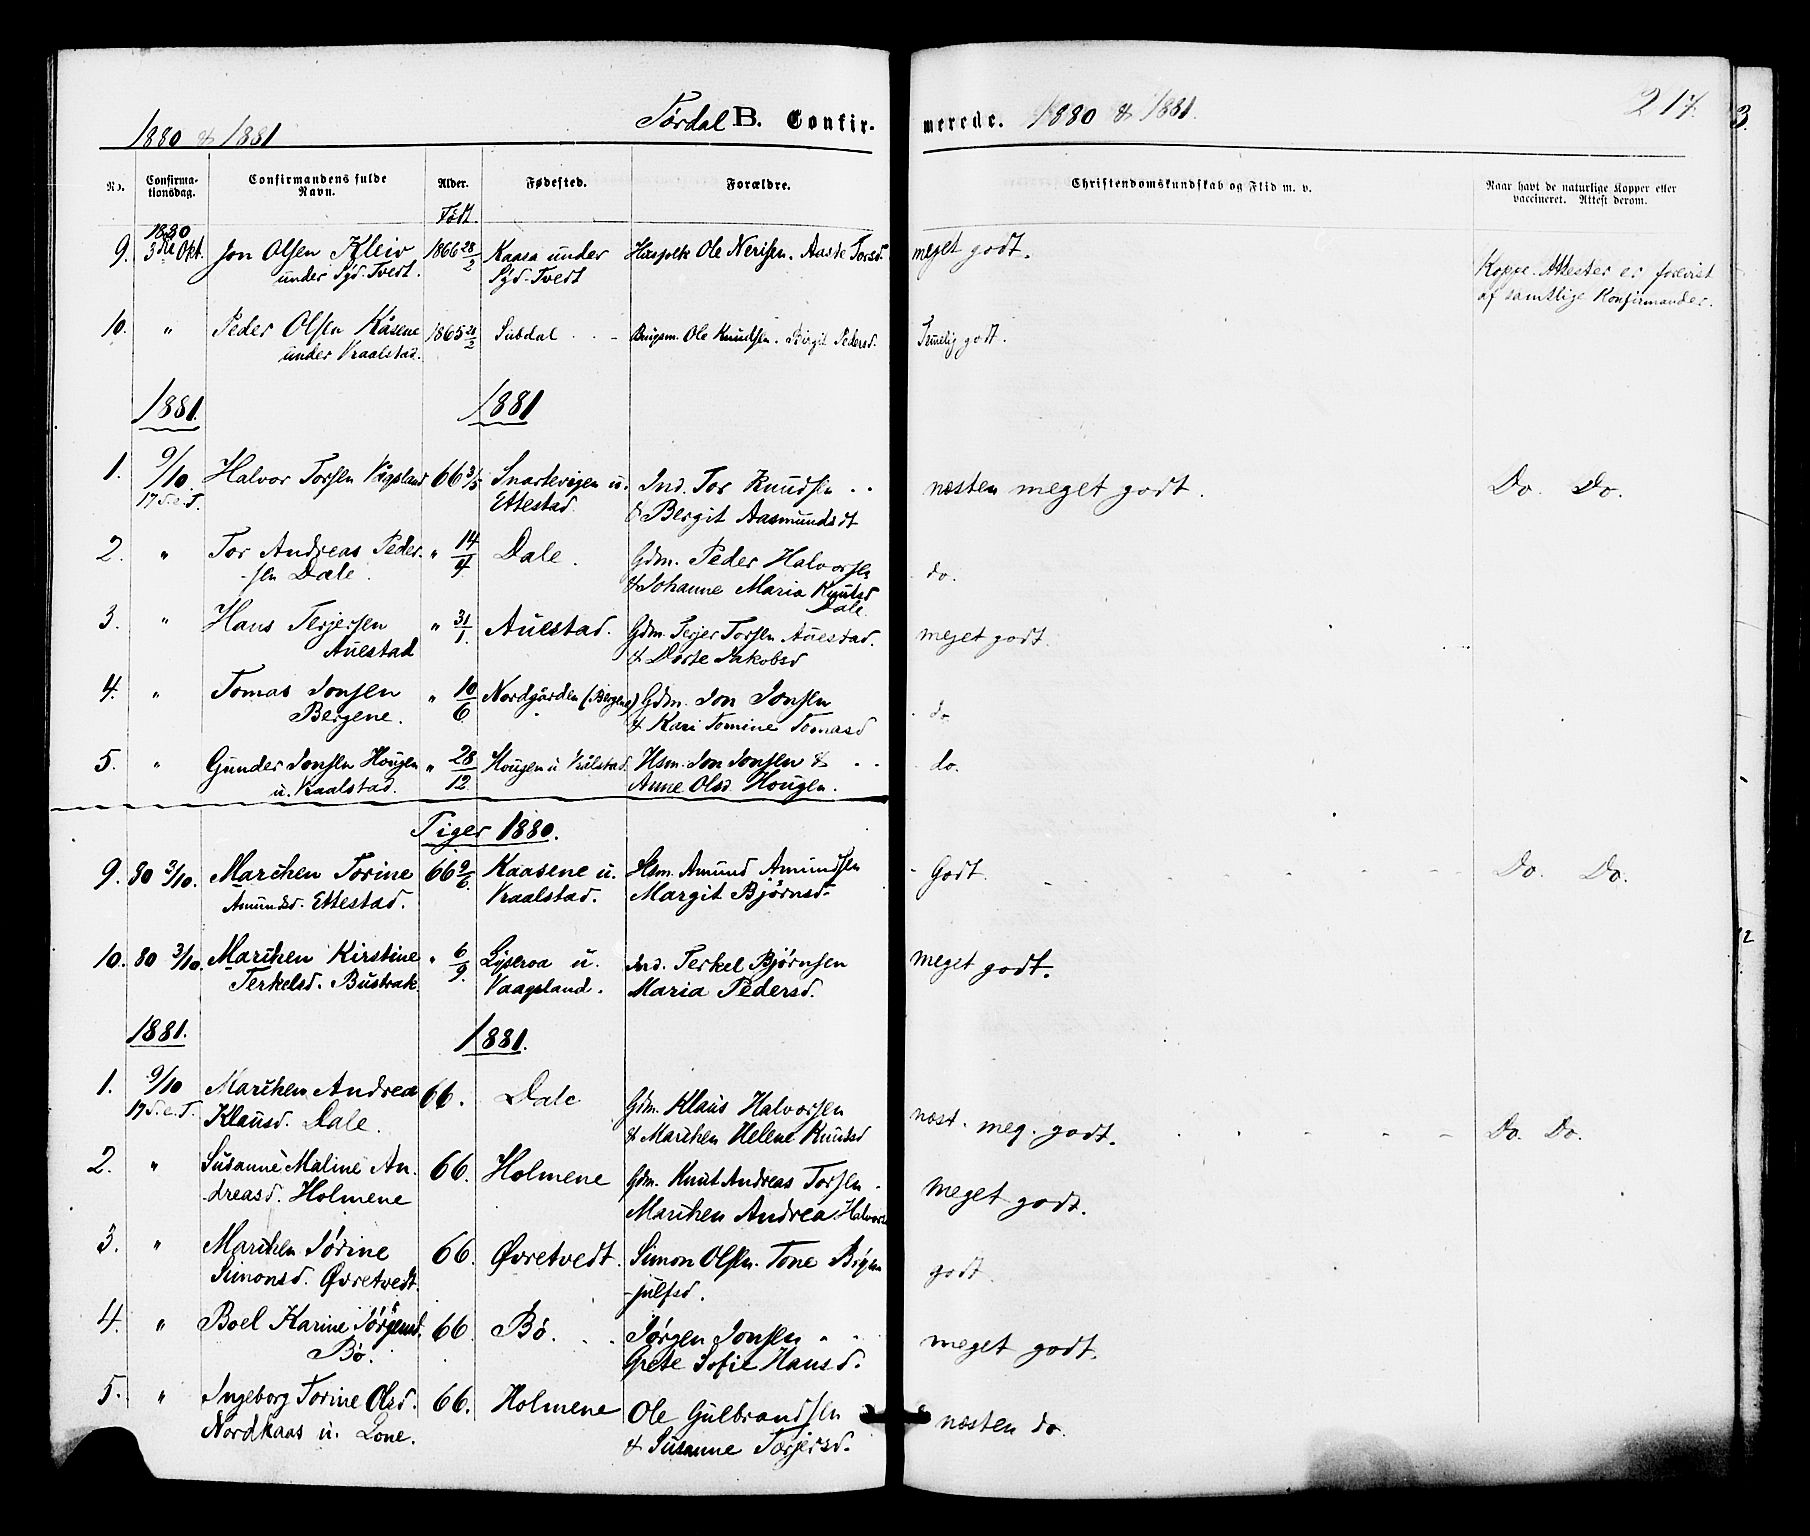 1880 & 1881
Tørdal B. Confir-
merede. 1880 & 1881.
217.
No.
Confirma-
tionsdag.
Confirmandens fulde
Navn.
Alder.
Født.
Fødested.
Forældre.
Christendomskundskab og Flid m. v.
Naar havt de naturlige Kopper eller
vaccineret. Attest derom.
1880
9. 3die Okt. Jon Olsen Kleiv 1866 28/2 Kaasa under Husfolk Ole Nerisen. Aaste Torsd. meget godt.
under Syd-Tvedt. Syd-Tvedt
Koppe-Attester er forevist
af samtlige Konfirmander.
10. " Peder Olsen Kåsene 1865 Subdal Brugsm. Ole Knudsen. Birgit Pedersd. Temelig godt.
under Vraalstad.
1881. 1881
1. 9/10 Halvor Torsen Vågsland 66 3/5 Snartevijen u. Ind. Tor Knudsen næsten meget godt. Do. Do.
17 S. e. T. Ettestad & Bergit Aasmundsdt
2. " Tor Andreas Peder- " 14/4 Dale. Gdm. Peder Halvorsen do.
sen Dale. & Johanne Maria Knutsd
Dale.
3. " Hans Terjersen " 31/1. Auestad. Gdm. Terjer Torsen Auestad. meget godt.
Auestad & Dorte Jakobsd
4. " Tomas Jonsen " 10/6 Nordgården (Bergene) Gdm. Jon Jonsen do
Bergene. & Kari Tomine Tomasd
5. " Gunder Jonsen Hougen " 28/12 Hougen u Vrålstad. Hsm. Jon Jonsen & do.
u. Vraalstad. Anne Olsd Hougen.
Piger 1880.
9. 80 3/10. Marichen Torine 66 9/6. Kaasene u. Hsm. Amund Amundsen Godt. Do. Do.
Amundsd. Ettestad. Vraalstad. Margit Bjørnsdt
10. 80 3/10. Marichen Kirstine " 6/9. Lyseroa u. Ind. Terkel Bjørnsen meget godt.
Terkelsd. Bustrak Vaagsland. Maria Pedersd.
1881. 1881.
1. 9/10 Marichen Andrea 66. Dale Gdm. Klaus Halvorsen næst. meg. godt. Do. Do.
17 S. e. T. Klausd. Dale. & Marichen Helene Knutsd
2. " Susanne Maline An- 66. Holmene Gdm. Knut Andreas Torsen meget godt.
dreasd. Holmene Marichen Andrea Halvors
3. " Marichen Sørine 66 Øvretvedt. Simon Olsen. Tone Bryn- godt.
Simonsd. Øvretvedt. julfsd.
4. " Boel Karine Jørgensd. 66. Bø. Jørgen Jonsen meget godt.
Bø. Grete Sofie Hansd.
5. " Ingeborg Torine Olsd. 66. Holmene Ole Gulbrandsen næsten do.
Nordkaas u. Lone. & Susanne Torjersd.